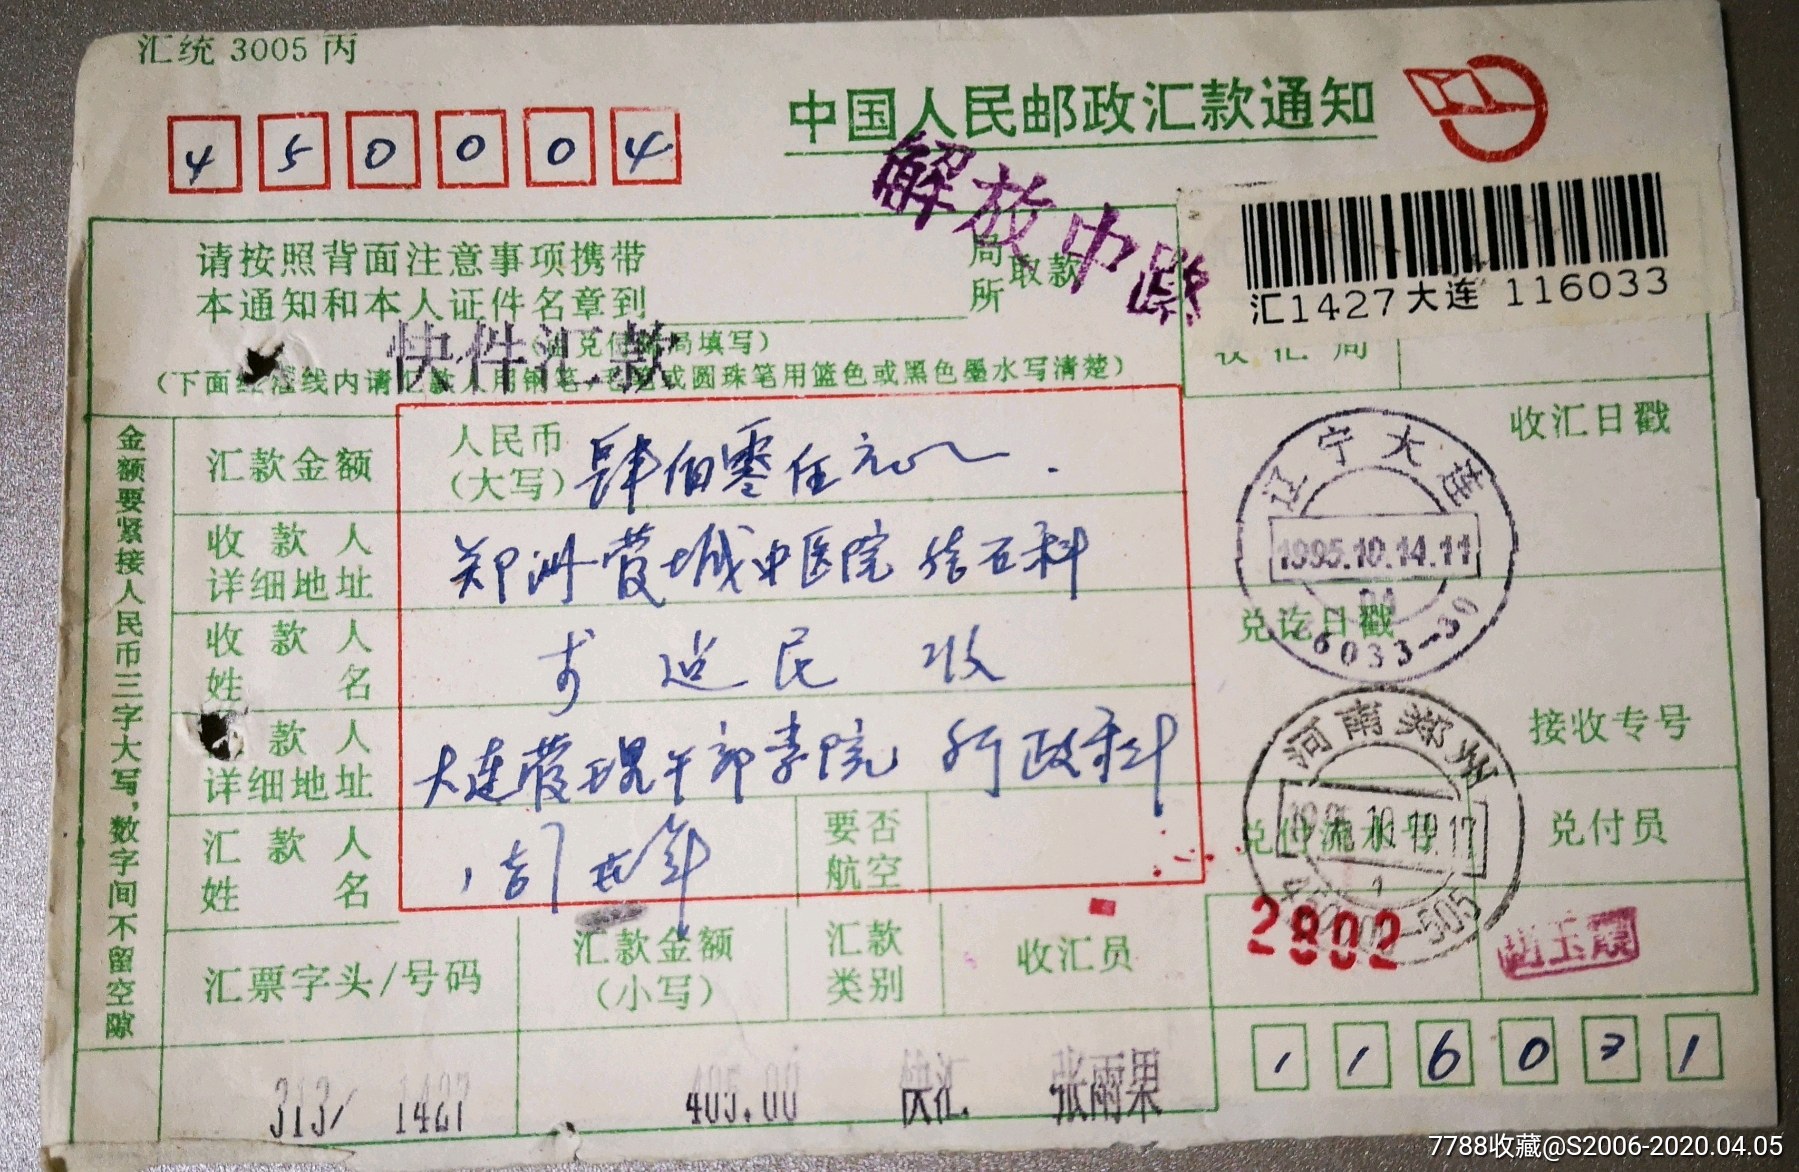 汇统 3005 丙
中国人民邮政汇款通知
450004
解放中路
请按照背面注意事项携带
本通知和本人证件名章到
局
所
取款
汇1427大连 116033
快件汇款
局填写)
收汇局
(下面
线内请
或圆珠笔用篮色或黑色墨水写清楚)
金额要紧接人民币三字大写,数字间不留空隙
汇款金额
人民币
(大写)
肆佰零伍元
收汇日戳
辽宁大连
1995.10.14.11
6033-30
收款人
详细地址
郑州 城中医院 结石科
收款人
姓名
民 收
兑讫日戳
款人
详细地址
大连 院 行政科
河南郑州
接收专号
汇款人
姓名
年
要否
航空
兑付流水号
兑付员
2802
玉霞
汇票字头/号码
汇款金额
(小写)
汇款
类别
收汇员
313/ 1427
405.00
快汇
张雨果
116031
7788收藏@S2006-2020.04.05